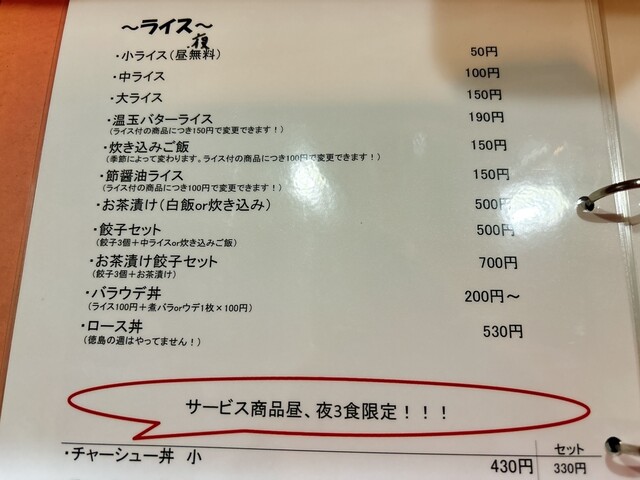 ～ライス～
・夜
・小ライス（昼無料） 50円
・中ライス 100円
・大ライス 150円
・温玉バターライス 190円
（ライス付の商品につき150円で変更できます！）
・炊き込みご飯 150円
（季節によって変わります。ライス付の商品につき100円で変更できます！）
・節醤油ライス 150円
（ライス付の商品につき100円で変更できます！）
・お茶漬け（白飯or炊き込み） 500円
・餃子セット 500円
（餃子3個＋中ライスor炊き込みご飯）
・お茶漬け餃子セット 700円
（餃子3個＋お茶漬け）
・バラウデ丼 200円～
（ライス100円＋煮バラorウデ1枚×100円）
・ロース丼 530円
（徳島の週はやってません！）
サービス商品昼、夜3食限定！！！
セット
・チャーシュー丼 小 430円 330円